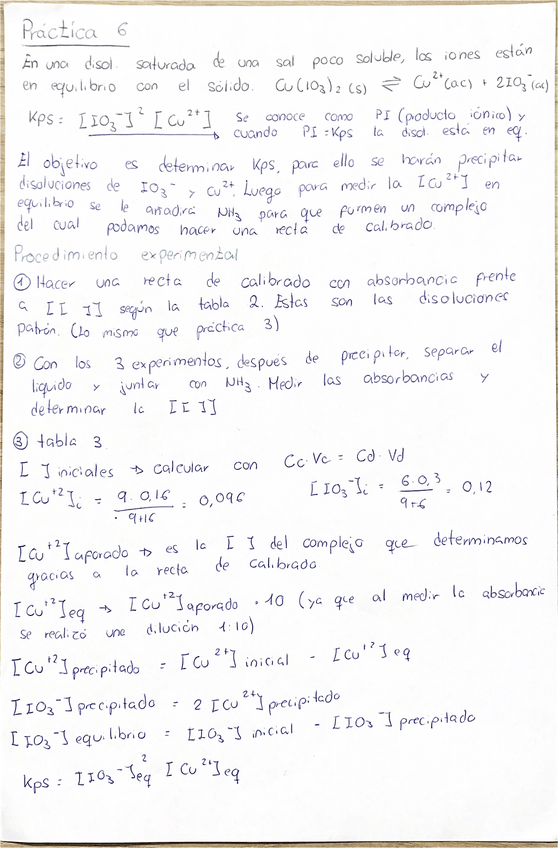 Práctica 6
En una disol. saturada de una sal poco soluble, los iones están
en equilibrio con el sólido. Cu(IO₃)₂ (s) ⇌ Cu²⁺(ac) + 2IO₃⁻(ac)
Kps = [IO₃⁻]² [Cu²⁺] Se conoce como PI (producto iónico) y
cuando PI = Kps la disol. está en eq.
El objetivo es determinar Kps, para ello se harán precipitar
disoluciones de IO₃⁻ y Cu²⁺. Luego para medir la [Cu²⁺] en
equilibrio se le añadirá NH₃ para que formen un complejo
del cual podamos hacer una recta de calibrado.
Procedimiento experimental
① Hacer una recta de calibrado con absorbancia frente
a [[ ]] según la tabla 2. Estas son las disoluciones
patrón. (Lo mismo que práctica 3)
② Con los 3 experimentos, después de precipitar, separar el
líquido y juntar con NH₃. Medir las absorbancias y
determinar la [[ ]]
③ tabla 3
[ ] iniciales → calcular con Cc·Vc = Cd·Vd
[Cu⁺²]i = 9·0,16 / 9+16 = 0,096 [IO₃⁻]i = 6·0,3 / 9+6 = 0,12
[Cu⁺²] aforado → es la [ ] del complejo que determinamos
gracias a la recta de calibrado
[Cu⁺²]eq → [Cu⁺²] aforado · 10 (ya que al medir la absorbancia
se realizó una dilución 1:10)
[Cu⁺²] precipitado = [Cu²⁺] inicial - [Cu⁺²] eq
[IO₃⁻] precipitado = 2 [Cu²⁺] precipitado
[IO₃⁻] equilibrio = [IO₃⁻] inicial - [IO₃⁻] precipitado
Kps = [IO₃⁻]²eq [Cu²⁺]eq